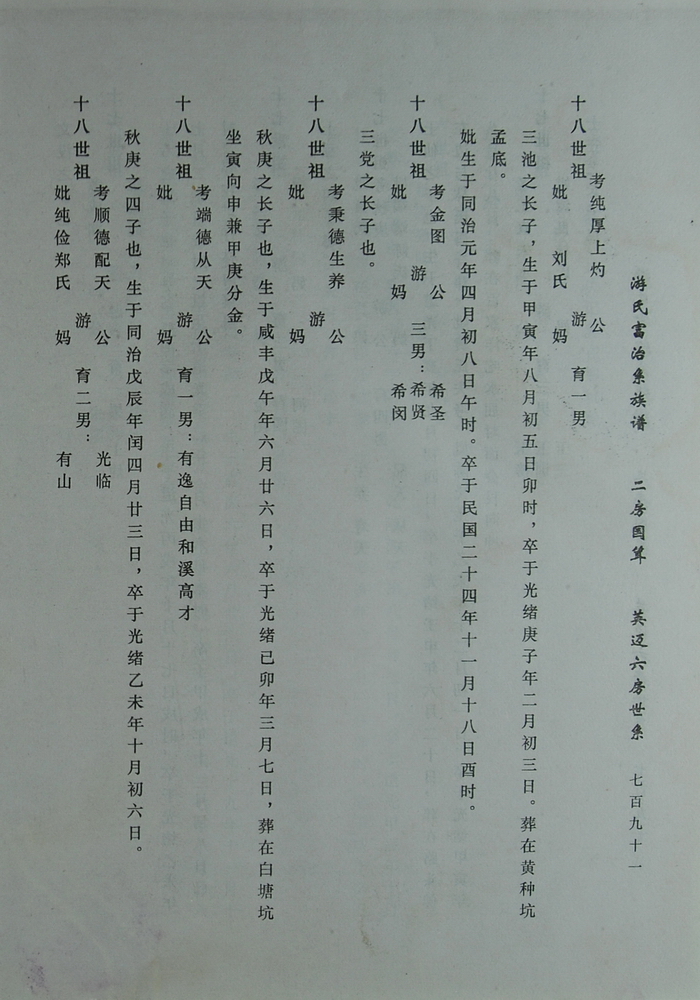 游氏富治系族谱 二房国耸 英迈六房世系 七百九十一
十八世祖 考纯厚上灼 妣 刘氏 游 公 妈 育一男
三池之长子，生于甲寅年八月初五日卯时，卒于光绪庚子年二月初三日。葬在黄种坑
孟底。
妣生于同治元年四月初八日午时。卒于民国二十四年十一月十八日酉时。
十八世祖 考金图 妣 游 公 妈 三男：希圣 希贤 希闵
三党之长子也。
十八世祖 考秉德生养 妣 游 公 妈
秋庚之长子也，生于咸丰戊午年六月廿六日，卒于光绪已卯年三月七日，葬在白塘坑
坐寅向申兼甲庚分金。
十八世祖 考端德从天 妣 游 公 妈 育一男：有逸自由和溪高才
秋庚之四子也，生于同治戊辰年闰四月廿三日，卒于光绪乙未年十月初六日。
十八世祖 考顺德配天 妣纯俭郑氏 游 公 妈 育二男： 光临 有山